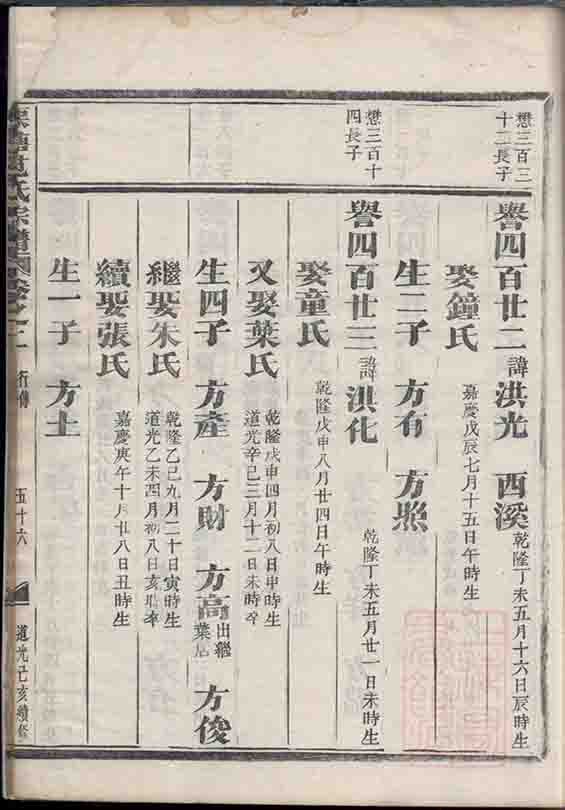 懋三百三
十二長子
譽四百廿二 諱洪光 西溪 乾隆丁未五月十六日辰時生
娶鐘氏 嘉慶戊辰七月十五日午時生
生二子 方有 方照
懋三百十
四長子
譽四百廿三 諱洪化 乾隆丁未五月廿一日未時生
娶童氏 乾隆戊申八月廿四日午時生
又娶葉氏 乾隆戊申四月初八日申時生
道光辛巳三月十二日未時卒
生四子 方產 方財 方高 出繼葉后 方俊
繼娶朱氏 乾隆乙巳九月二十日寅時生
道光乙未四月初八日亥時卒
續娶張氏 嘉慶庚午十月廿八日丑時生
生一子 方土
氏宗譜 行傳 五十六 道光己亥續修